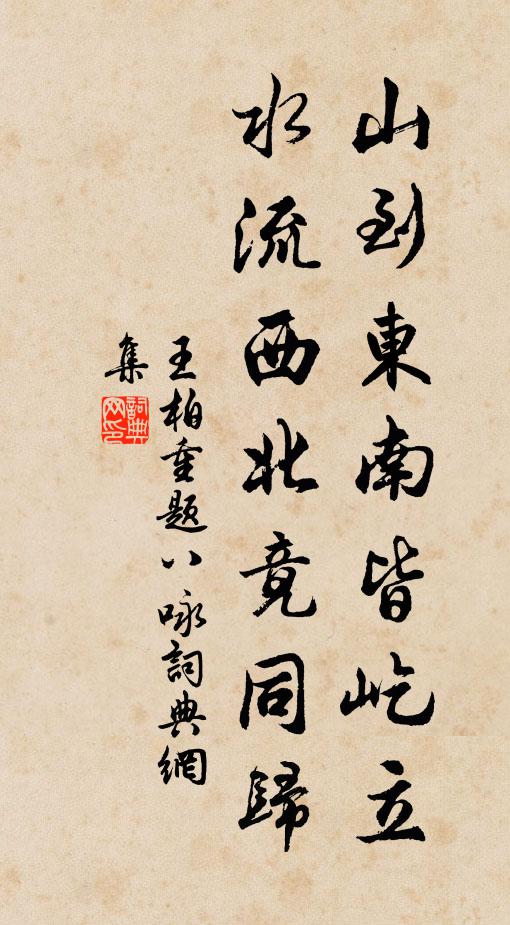 山到東南皆屹立
水流西北竟同歸
王柏重題八咏詞典網
集
詞典
网印